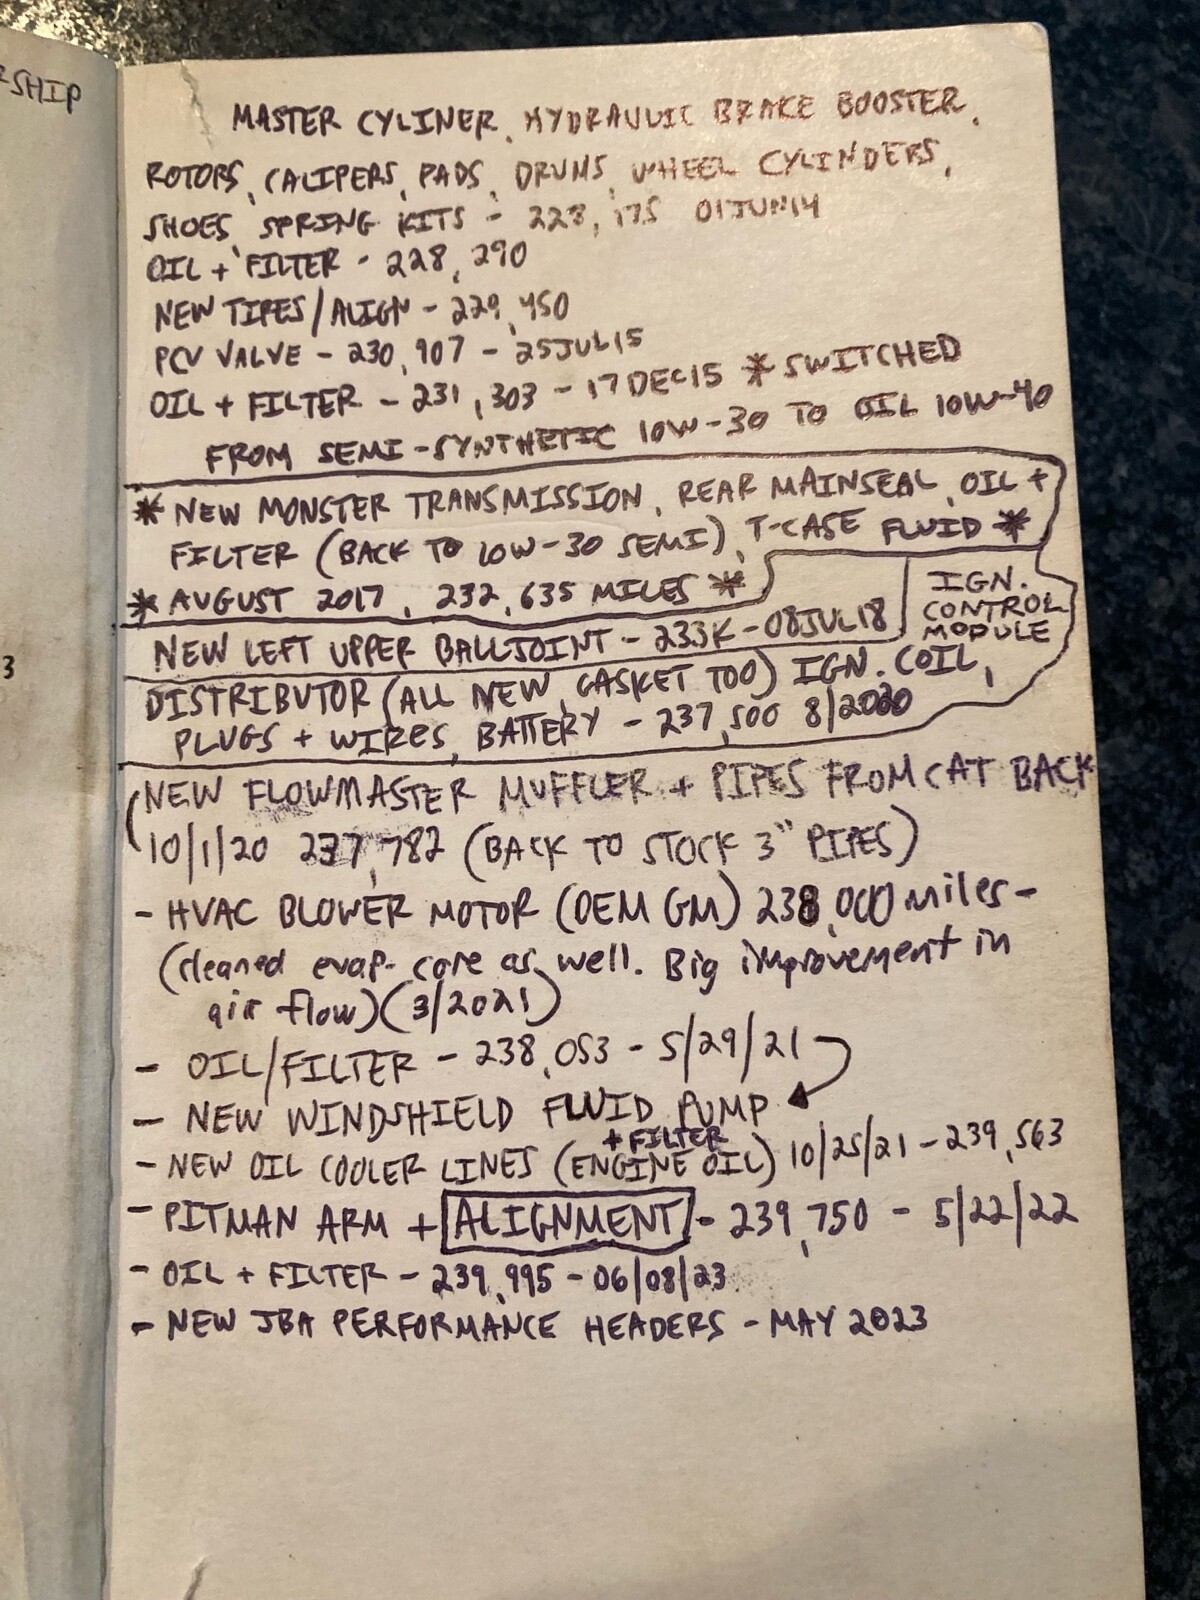 SHIP
MASTER CYLINER, HYDRAULIC BRAKE BOOSTER,
ROTORS, CALIPERS, PADS, DRUMS, WHEEL CYLINDERS,
SHOES, SPRING KITS - 228,175 01JUN14
OIL + FILTER - 228,290
NEW TIRES/ALIGN - 229,450
PCV VALVE - 230,907 - 25JUL15
OIL + FILTER - 231,303 - 17DEC15 * SWITCHED
FROM SEMI-SYNTHETIC 10W-30 TO OIL 10W-40
* NEW MONSTER TRANSMISSION, REAR MAINSEAL, OIL +
FILTER (BACK TO 10W-30 SEMI), T-CASE FLUID *
* AUGUST 2017, 232,635 MILES *
IGN. CONTROL MODULE
NEW LEFT UPPER BALLJOINT - 233K - 08JUL18
DISTRIBUTOR (ALL NEW, GASKET TOO) IGN. COIL,
PLUGS + WIRES, BATTERY - 237,500 8/2020
(NEW FLOWMASTER MUFFLER + PIPES FROM CAT BACK
10/1/20 237,782 (BACK TO STOCK 3" PIPES)
- HVAC BLOWER MOTOR (OEM GM) 238,000 miles -
(cleaned evap. core as well. Big improvement in
air flow) (3/2021)
- OIL/FILTER - 238,053 - 5/29/21
- NEW WINDSHIELD FLUID PUMP
+ FILTER
- NEW OIL COOLER LINES (ENGINE OIL) 10/25/21 - 239,563
- PITMAN ARM + ALIGNMENT - 239,750 - 5/22/22
- OIL + FILTER - 239,995 - 06/08/23
- NEW JBA PERFORMANCE HEADERS - MAY 2023
3